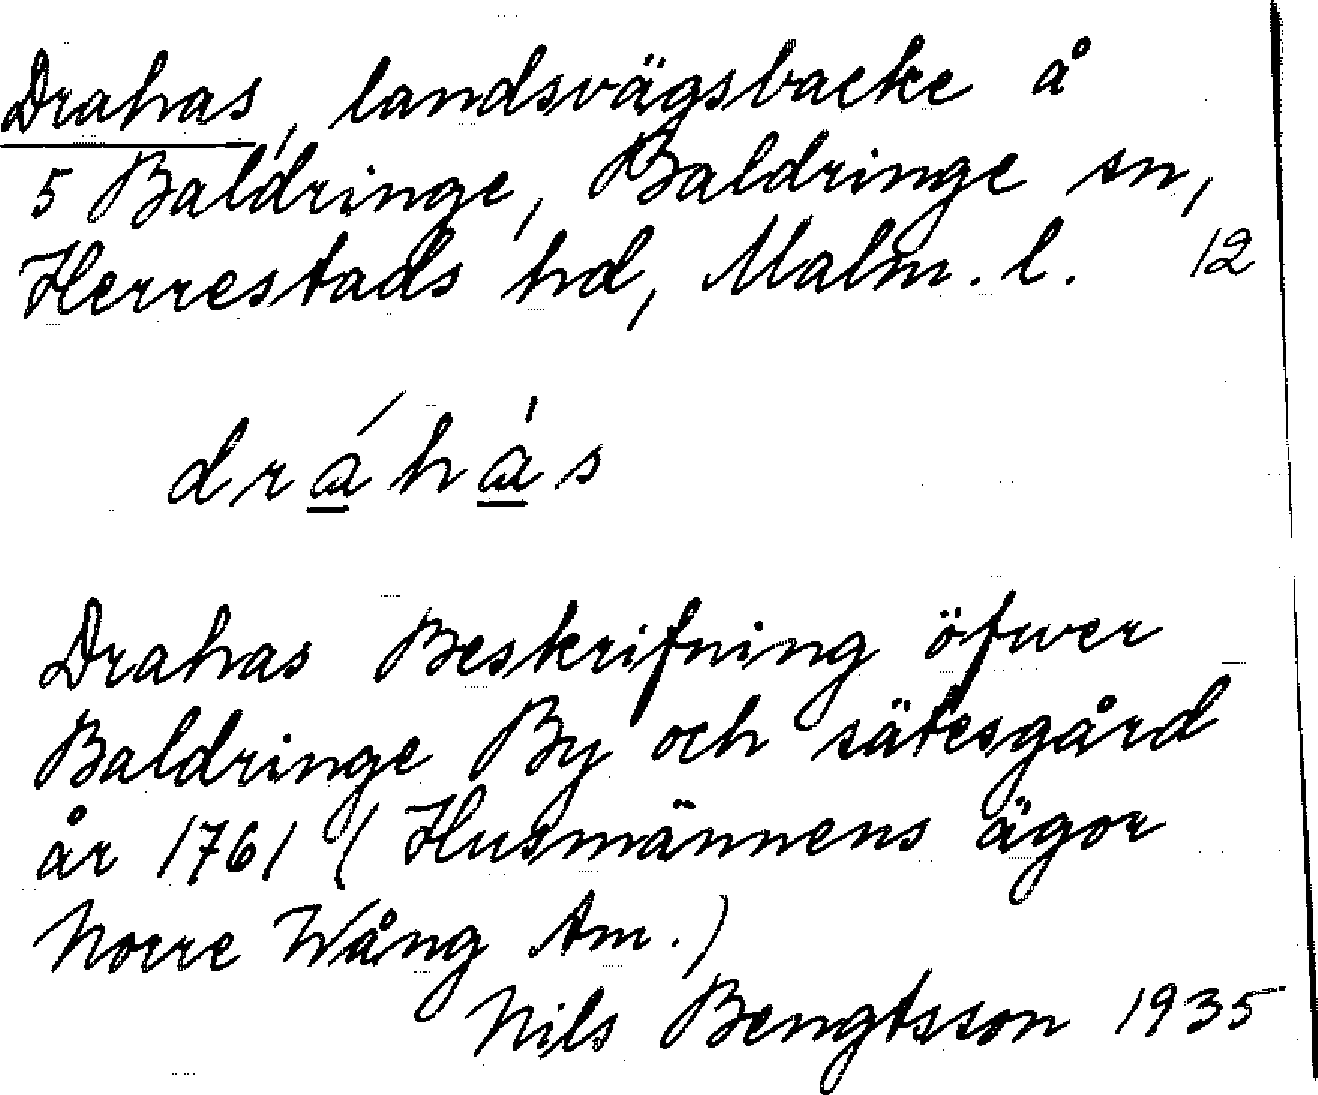 Drahas, landsvägsbacke å
5 Baldringe, Baldringe sn,
Herrestads hd, Malm. l. 12
dráhás
Drahas Beskrifning öfwer
Baldringe By och sätesgård
år 1761 (Husmännens ägor
Norre Wång Am.)
Nils Bengtsson 1935